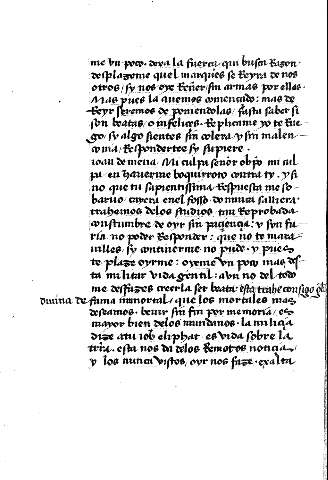 me vn poco. dexa la fuerça. que buena Razon
desplazome quel marques se Reyra de nos
otros / sy nos oye Reñer / sin armas por ellas.
Mas pues la avemos començado: mas de
Reyr seremos de poniendolas / fasta saber si
son beatas, o infelices. Replicame yo te Rue
go / sy algo sientes sin colera y sin malen
conia, Respondertee sy supiere.
Joan de mena. Mi culpa señor obpo mi cul
pa en haverme boquirroto contra ty. y si
no que tu sapientissima Respuesta me so
barvo cayera en el fosso. do nunca saliera
trahemos delos studios tan Reprobada
constumbre de oyr sin paçiençia: y son fu
ria no poder Responder: que no te mara
uilles, sy contenerme no pude. y pues
te plaze oyrme: oyeme vn poco mas. es
ta militar vida gentil. avn no del todo
me desfazes creerla ser beata: esta trahe consigo
divina de fama inmortal, que los mortales mas
deseamos. bevir sin fin por memoria / es
mayor bien delos mundanos. la miliçia
dize a tu iob eliphat es vida sobre la
tierra. esta nos da delos Remotos noticia
y los nunca vistos, oyr nos faze. exalta